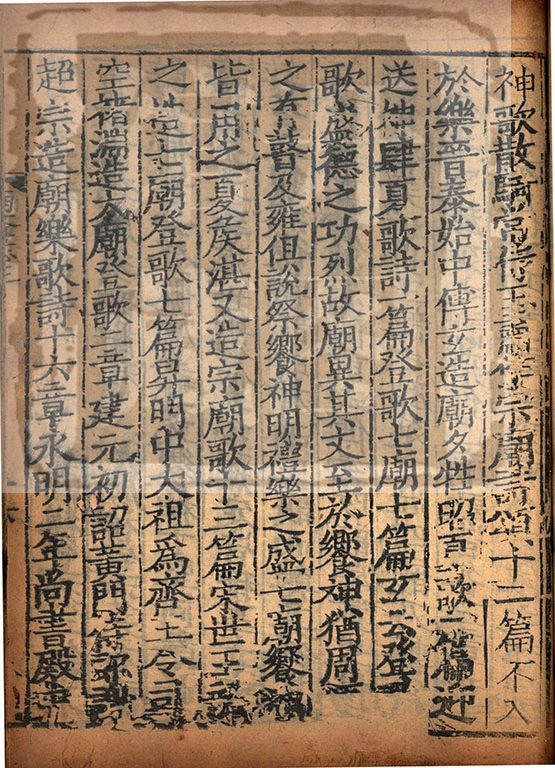 神歌散騎常侍王宗廟詩頌十二篇不入
於樂晉泰始中傅玄造廟夕牲昭夏歌一篇迎
送神肆夏歌詩一篇登歌七廟七篇玄云登
歌盛德之功烈故廟異其文至於饗神猶周
之有瞽及雍但說祭饗神明禮樂之盛七朝饗神
皆用之夏侯湛又造宗廟歌十三篇宋世王
之造七廟登歌七篇昇明中大祖為齊王令司
空褚淵造太廟登歌二章建元初詔黃門侍郎
超宗造廟樂歌詩十六章永明二年尚書殿中